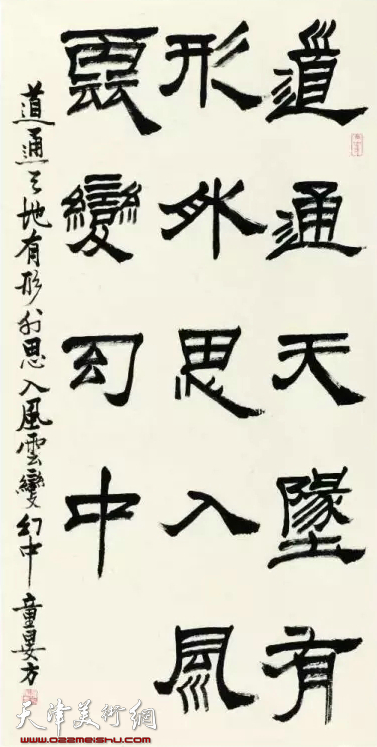 道通天墬有
形外思入風
雲變幻中
道通天地有形外思入風雲變幻中 童晏方
天津美術網
www.022meishu.com